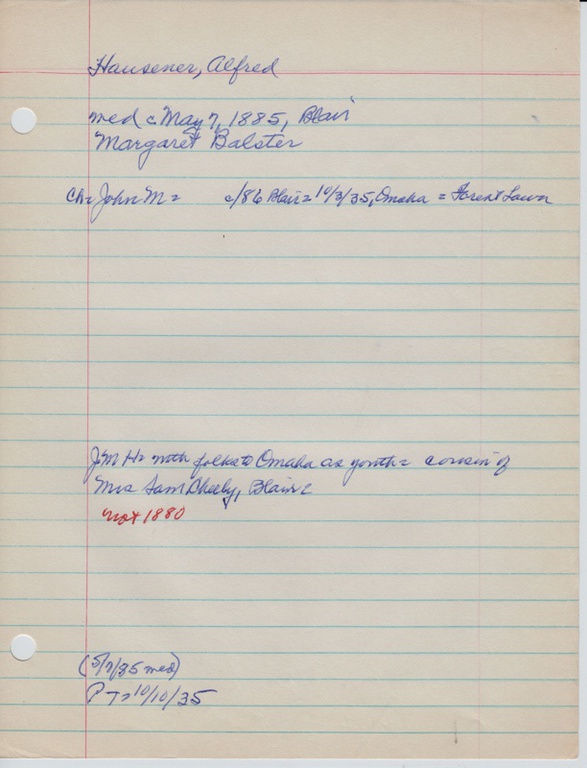 Hausener, Alfred
med c May 7, 1885, Blair
Margaret Balster
Ch = John M = c/86 Blair = 10/3/35, Omaha = Forest Lawn
J M H = with folks to Omaha as youth = cousin of
Mrs Sam, Blair =
not 1880
(5/7/85 med)
P T = 10/10/35